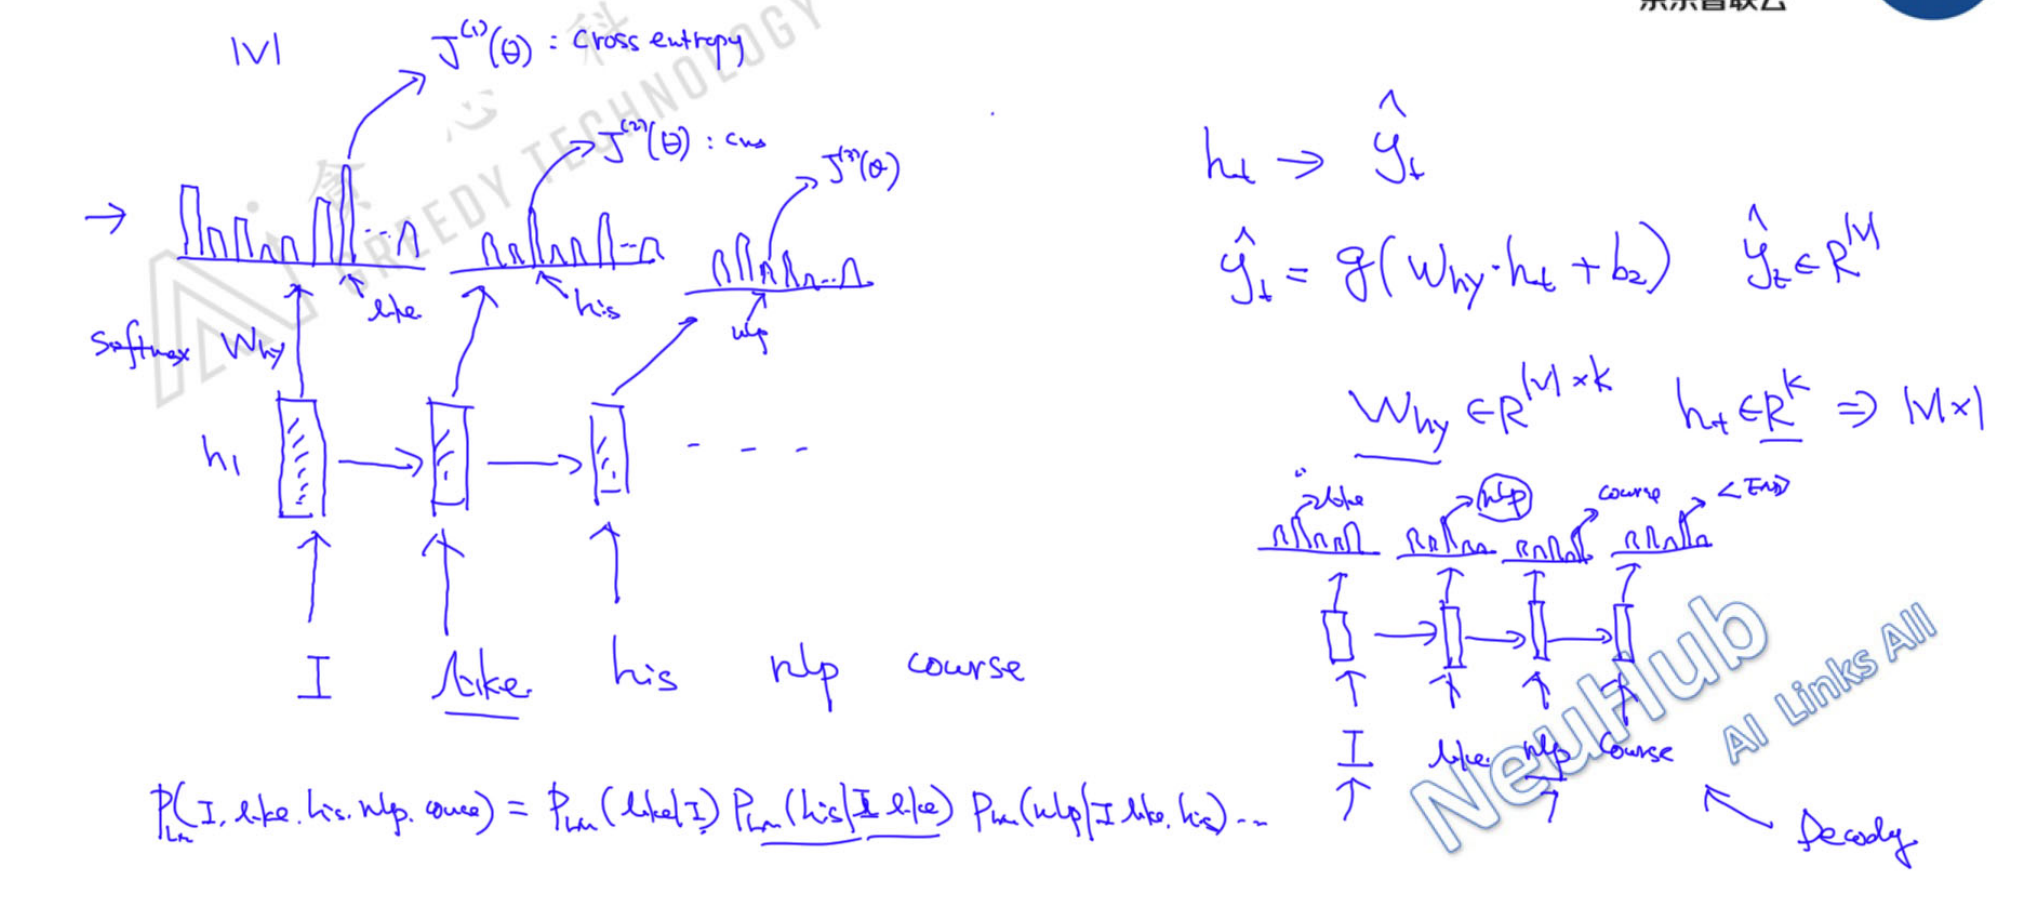 |V|
J^(1)(θ) : Cross entropy
J^(2)(θ) :
J^(3)(θ)
like
his
nlp
softmax Why
h1
I like his nlp course
P_LM(I, like, his, nlp, course) = P_LM(like|I) P_LM(his|I like) P_LM(nlp|I like, his) ...
h_t → ŷ_t
ŷ_t = g(W_hy · h_t + b_2) ŷ_t ∈ R^|V|
W_hy ∈ R^|V|×k h_t ∈ R^k ⇒ |V|×1
like nlp course <END>
I like nlp course
贪 心 科
GREEDY TECHNOLOGY
NeuHub
AI Links All